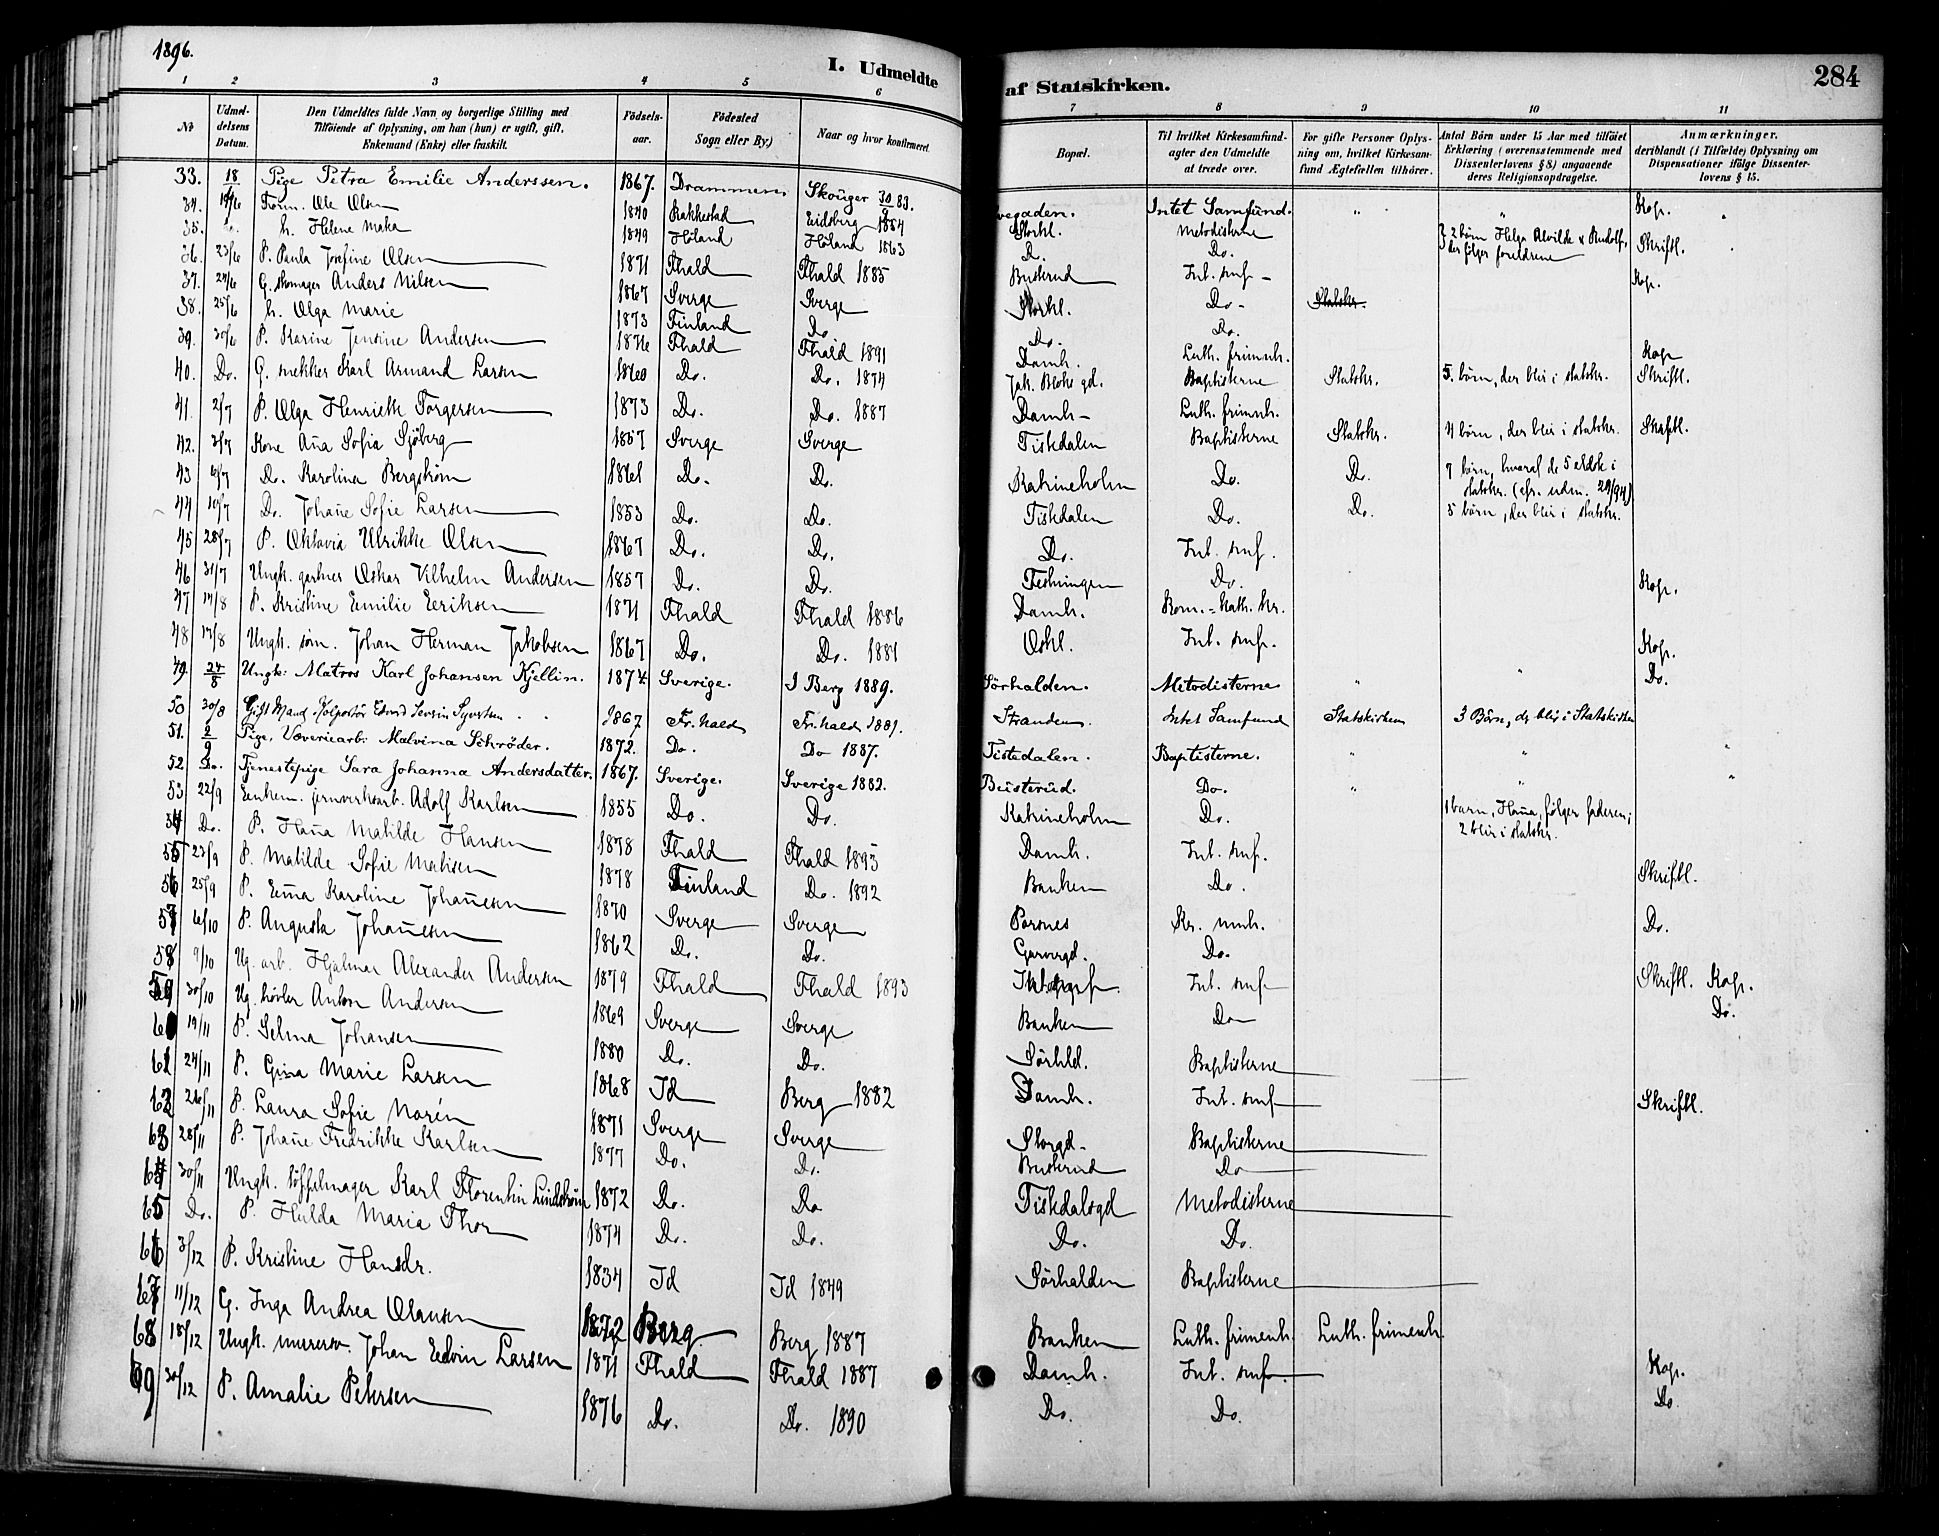 1896.
I. Udmeldte af Statskirken.
284
1 2 3 4 5 6 7 8 9 10 11
No
Udmeldelsens Datum.
Den Udmeldtes fulde Navn og borgerlige Stilling med
Tilføiende af Oplysning, om han (hun) er ugift, gift,
Enkemand (Enke) eller fraskilt.
Födselsaar.
Födested
Sogn eller By.)
Naar og hvor konfirmeret.
Bopæl.
Til hvilket Kirkesamfund agter den Udmeldte at træde over.
For gifte Personer Oplysning om, hvilket Kirkesamfund Ægtefællen tilhører.
Antal Börn under 15 Aar med tilføiet Erklæring (overensstemmende med Dissenterlovens § 8) angaaende deres Religionsopdragelse.
Anmærkninger.
deriblandt (i Tilfælde) Oplysning om Dispensationer ifølge Dissenterlovens § 15.
33. 18 Pige Petra Emilie Anderssen. 1867. Drammen Skouger 30 83. Intet Samfund. " " Kop.
34. Ole Olsen 1840 Rakkestad Eidsberg 1854 Storhl. Metodisterne 2 börn Helga Alvilde & Rudolf, der følger foreldrene Skriftl.
35. h. Helene Maka 1849 Höland Höland 1863 D. Do.
36. 23/6 P. Paula Josefine Olsen 1871 Fhald Fhald 1885 Busterud Int. smf - Kop.
37. 24/6 G. skomager Anders Nilsen 1867 Sverge Sverge Storhl. Do - Statskr.
38. 25/6 h. Olga Marie 1873 Finland Do Do. Do.
39. 30/6 P. Karine Jensine Andersen 1876 Fhald Fhald 1891 Damh. Luth. frimnh. Kop
40. Do. G. snekker Karl Armand Larsen 1860 Do. Do. 1874 Jak. Bloks gd. Baptisterne Statskr. 5. börn, der blir i statskr. Skriftl.
41. 2/7 P. Olga Henriette Torgersen 1873 Do. Do. 1887 Damh - Luth. frimnh.
42. 3/7 Kone Aña Sofia Sjöberg 1857 Sverge Sverge Tistedalen Baptisterne Statskr. 4 börn, der blir i statskr. Skriftl.
43 6/7 Do. Karolina Bergström 1861 Do. Do. Katrineholm Do. Do. 7 börn, hvoraf de 5 eldste i statskr. (cfr. udm. 29/94)
44 10/7 Do. Johañe Sofie Larsen 1853 Do. Do. Tistedalen Do. Do. 5 börn, der blir i statskr.
45 28/7 P. Oktavia Ulrikke Olsen 1867 Do. Do. Do. Int. smf.
46 31/7 Ungk. gartner Oskar Vilhelm Andersen 1857 Do. Do. Festningen Do. Kop.
47 14/8 P. Kristine Emilie Eriksen 1871 Fhald Fhald 1886 Damh. Rom.=kath. kr.
48 17/8 Ungk. söm. Johan Herman Jakobsen 1867 Do. Do. 1881 Oskl. Int. smf. Kop.
49. 24/8 Ungk: Matros Karl Johansen Kjellin. 1874 Sverige. I Berg 1889. Sörhalden. Metodisterne " " Do.
50 30/8 Gift Mand, Kolportör Edvard Severin Syvertsen 1867 Fr.hald Fr.hald 1881. Stranden. Intet Samfund Statskirken 3 Börn, der blir i Statskirken
51. 2/9 Pige, Væveriearb: Malvina Schröder. 1872. Do. Do 1887. Tistedalen. Baptisterne. " " "
52 Do. Tjenestepige Sara Johanna Andersdatter. 1867. Sverige. Sverige 1882. Busterud. Do. " " "
53 22/9 Enkem. jernverksarb. Adolf Karlsen 1855 Do. Do. Katrineholm Do. 1 barn, Haña, følger faderen; 2 blir i statskr.
54 Do. P. Haña Matilde Hansen 1878 Fhald Fhald 1893 Damh. Int. smf.
55 23/9 P. Matilde Sofie Matisen 1878 Finland Do. 1892 Banken Do. Skriftl.
56 25/9 P. Em̃a Karoline Johañesen 1870 Sverge Sverge Porsnes Kr. mnh. Do.
57 6/10 P. Augusta Johañesen 1862 Do. Do. Garvergd. Do.
58 9/10 Ug. arb. Hjalmar Alexander Andersen 1879 Fhald Fhald 1893 Int. smf Skriftl. Kop.
59 30/10 Ug. hövler Anton Andersen 1869 Sverge Sverge Banken Do Do.
60 19/11 P. Selma Johansen 1880 Do. Do. Sörhld. Baptisterne
61 24/11 P. Gina Marie Larsen 1868 Id Berg 1882 Damh. Int. smf Skriftl.
62 26/11 P. Laura Sofie Norén 1871 Sverge Sverge Storgd - Baptisterne
63 28/11 P. Johañe Fredrikke Karlsen 1877 Do. Do. Busterud Do
64 30/11 Ungk. töffelmager Karl Florentin Lindström 1872 Do. Do Tistedalsgd Metodisterne
65 Do. P. Hulda Maria Thor 1874 Do. Do. Do. Do.
66 3/12 P. Kristine Hansdr. 1834 Id Id 1849 Sörhalden Baptisterne
67 11/12 G. Inga Andrea Olausen 1872 Berg Berg 1887 Banken Luth. frimenh. Luth. frimenh.
68 18/12 Ungk. murersv. Johan Edvin Larsen 1871 Fhald Fhald 1887 Damh. Int. smf. Kop.
69 30/12 P. Amalie Petersen 1876 Do. Do. 1890 Do. Do. Do